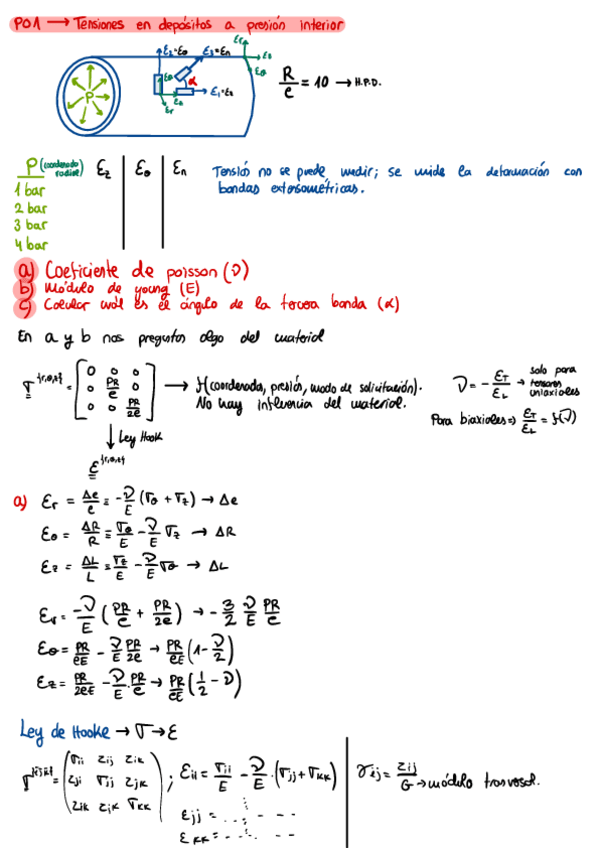 P01 → Tensiones en depósitos a presión interior
ε₂=εθ ε₃=εn εr
εz
εθ
P εθ α
εz ε₁=εz
εr
R/e = 10 → H.P.D.
P (coordenada radial) εz | εθ | εn
Tensión no se puede medir; se mide la deformación con
bandas extensométricas.
1 bar
2 bar
3 bar
4 bar
a) Coeficiente de poisson (ν)
b) Módulo de young (E)
c) Calcular cuál es el ángulo de la tercera banda (α)
En a y b nos preguntan algo del material
σ^{r,θ,z} = [0 0 0; 0 PR/e 0; 0 0 PR/2e] → f(coordenada, presión, modo de solicitación).
No hay influencia del material.
ν = - εT/εL → solo para tensores uniaxiales
Para biaxiales ⇒ εT/εL = f(ν)
↓ Ley Hook
ε^{r,θ,z}
a) εr = Δe/e = -ν/E (σθ + σz) → Δe
εθ = ΔR/R = σθ/E - ν/E σz → ΔR
εz = ΔL/L = σz/E - ν/E σθ → ΔL
εr = -ν/E (PR/e + PR/2e) → - 3/2 ν/E PR/e
εθ = PR/eE - ν/E PR/2e → PR/eE (1 - ν/2)
εz = PR/2eE - ν/E · PR/e → PR/eE (1/2 - ν)
Ley de Hooke → σ → ε
σ^{ijk} = (σii τij τik; τji σjj τjk; τik τjk σkk) ; εii = σii/E - ν/E · (σjj + σkk) | γij = τij/G → módulo trasversal.
εjj = . . . - - -
εkk = - . . - - -